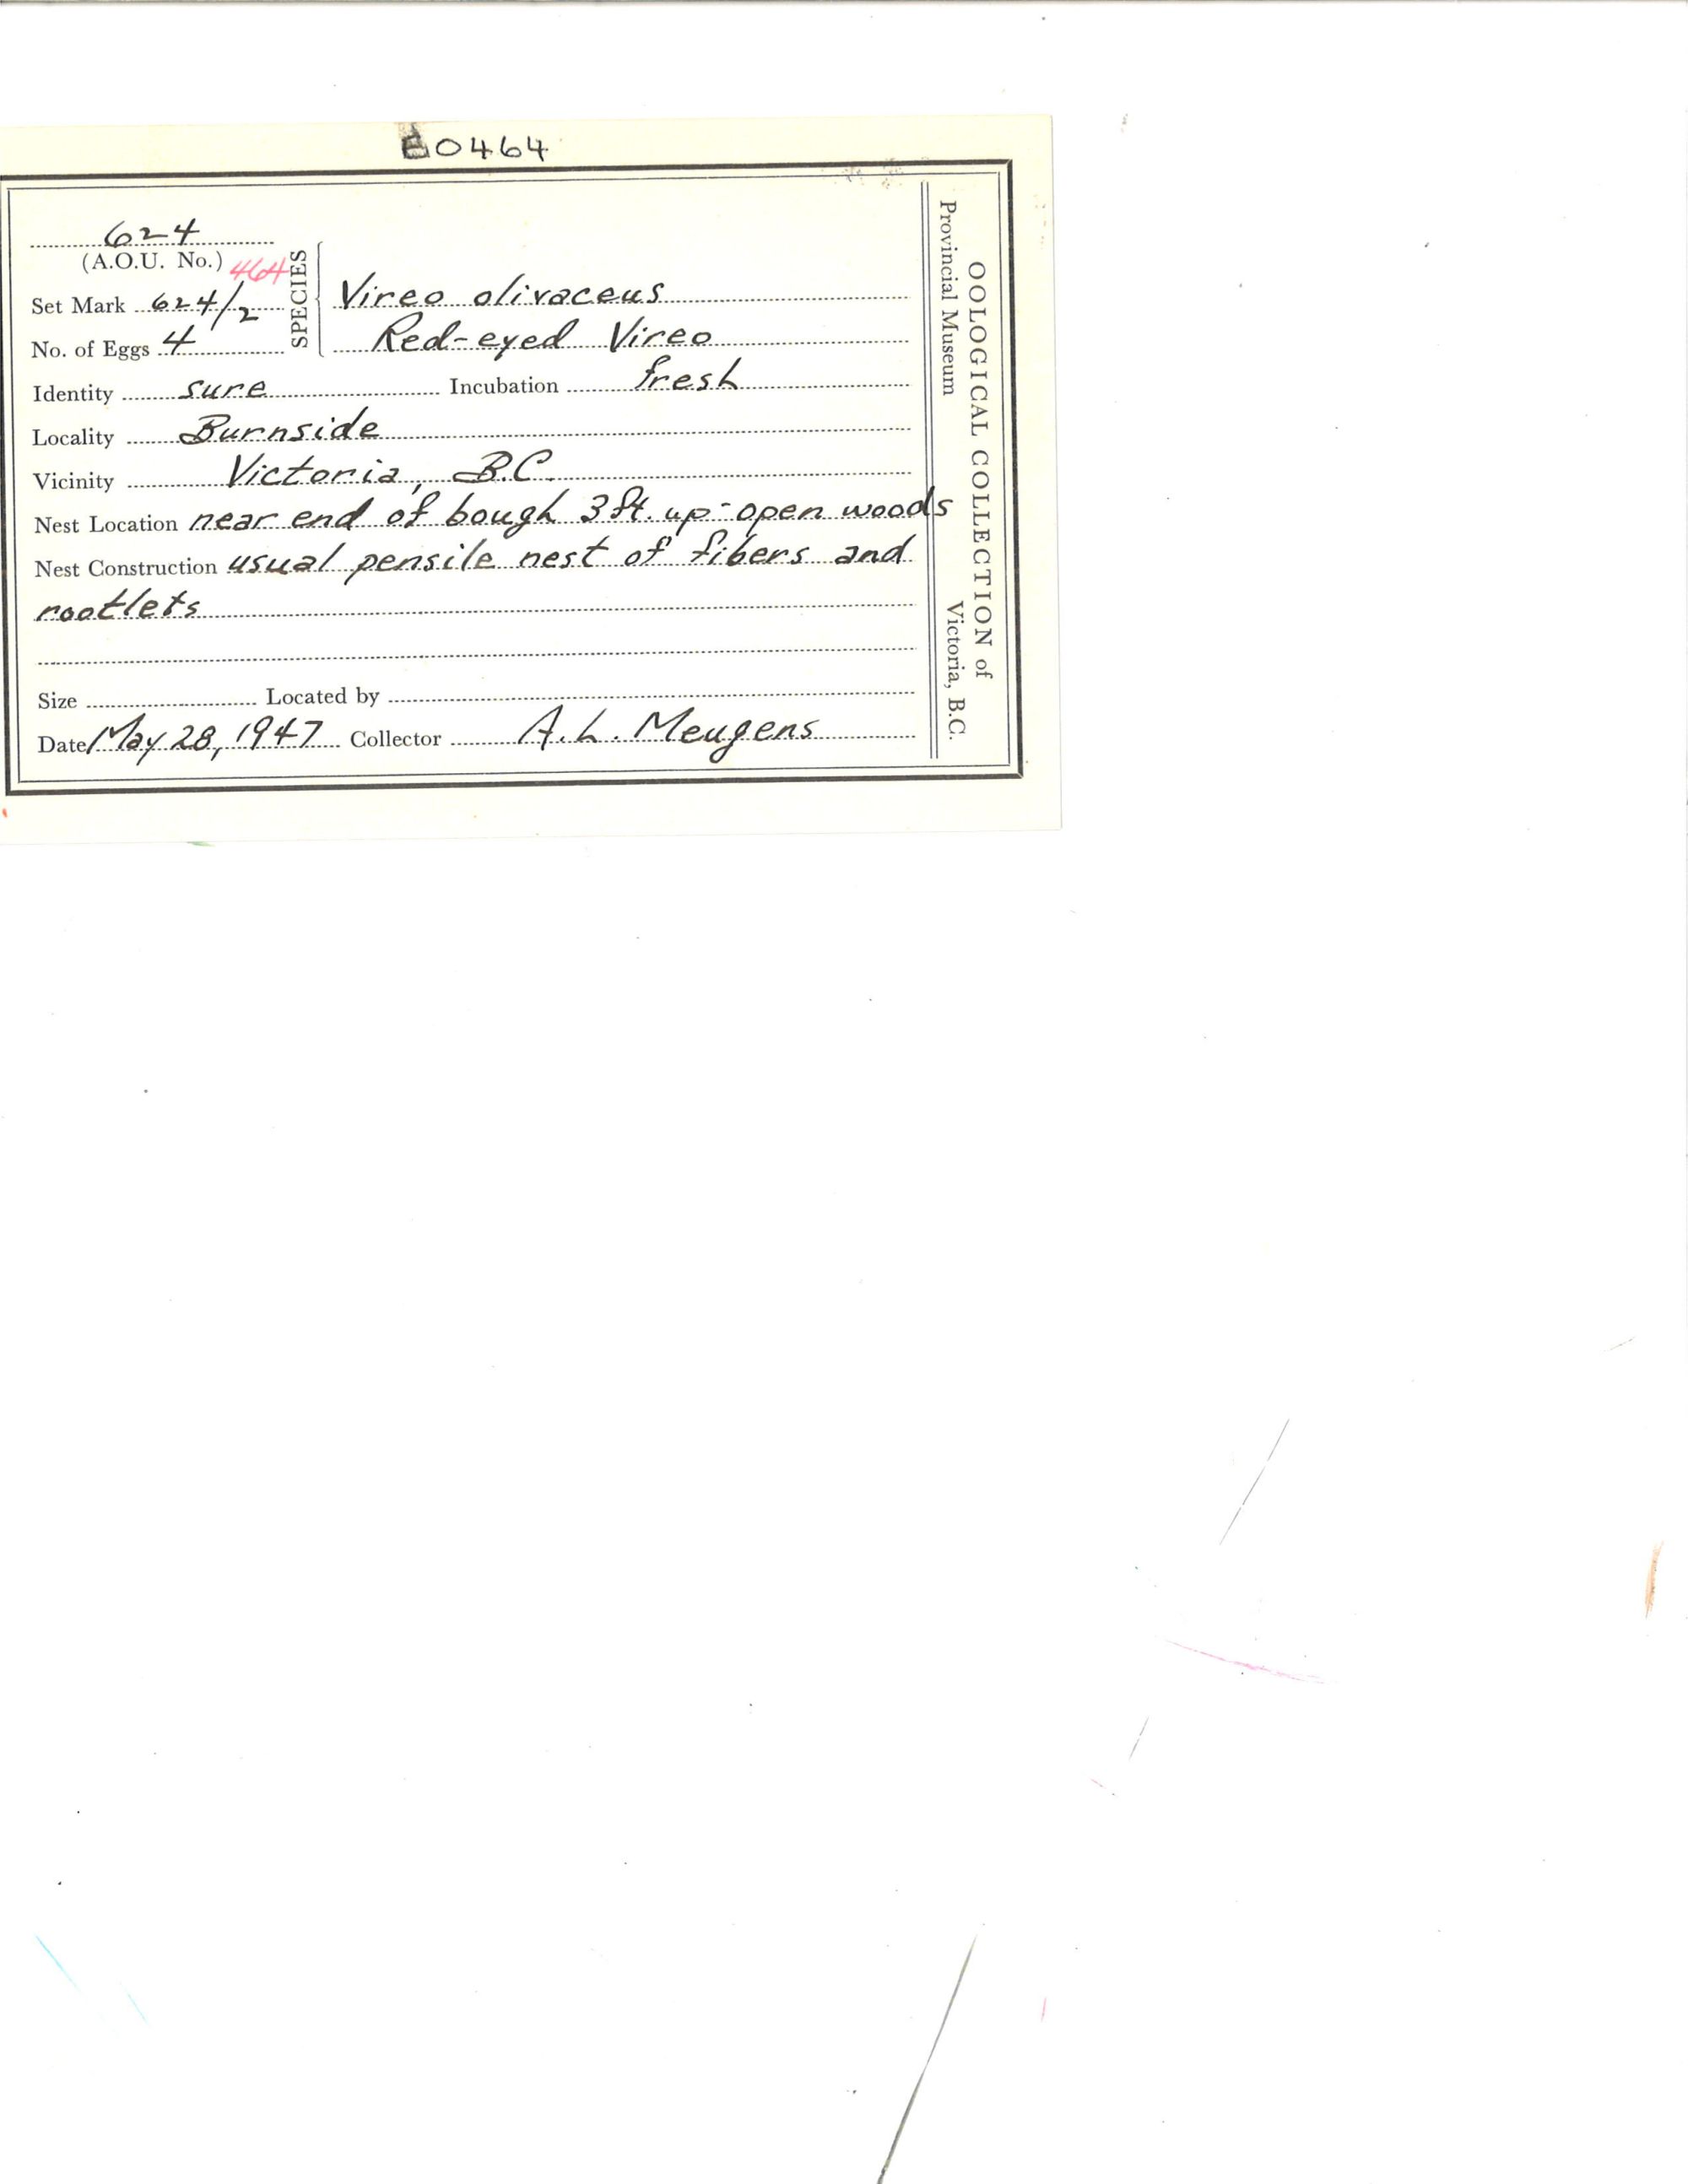 E0464
624
(A.O.U. No.) 464
Set Mark 624/2
No. of Eggs 4
SPECIES
Vireo olivaceus
Red-eyed Vireo
Identity sure Incubation fresh
Locality Burnside
Vicinity Victoria, B.C.
Nest Location near end of bough 3 ft. up - open woods
Nest Construction usual pensile nest of fibers and
rootlets
Size Located by
Date May 28, 1947 Collector A.L. Meugens
OOLOGICAL COLLECTION of
Provincial Museum Victoria, B.C.